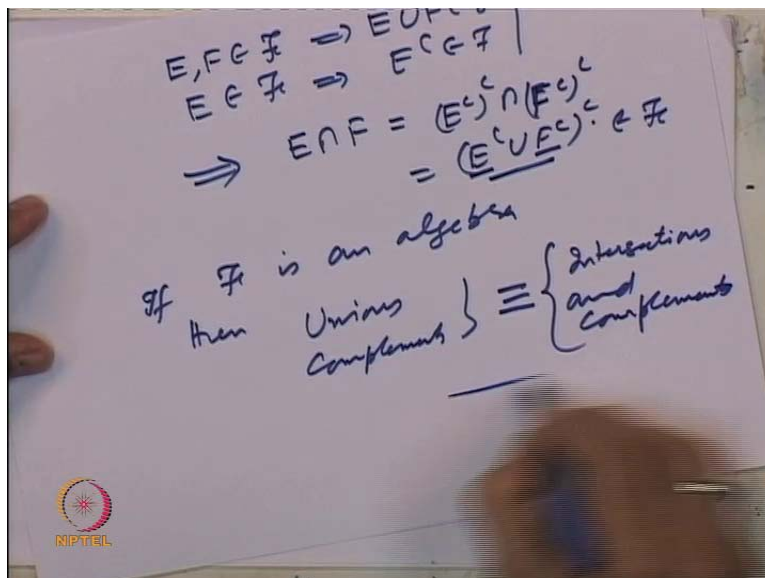 E, F ∈ ℱ ⟹ E ∪ F
E ∈ ℱ ⟹ E^C ∈ ℱ
⟹ E ∩ F = (E^C)^C ∩ (F^C)^C
= (E^C ∪ F^C)^C ∈ ℱ
If ℱ is an algebra
then Unions Complements } ≡ { Intersections and complements
NPTEL